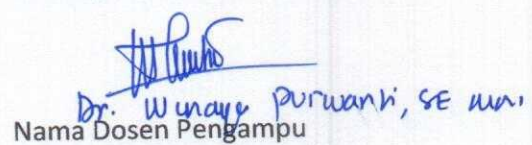 Dr. Winayu Purwanti, SE
Nama Dosen Pengampu